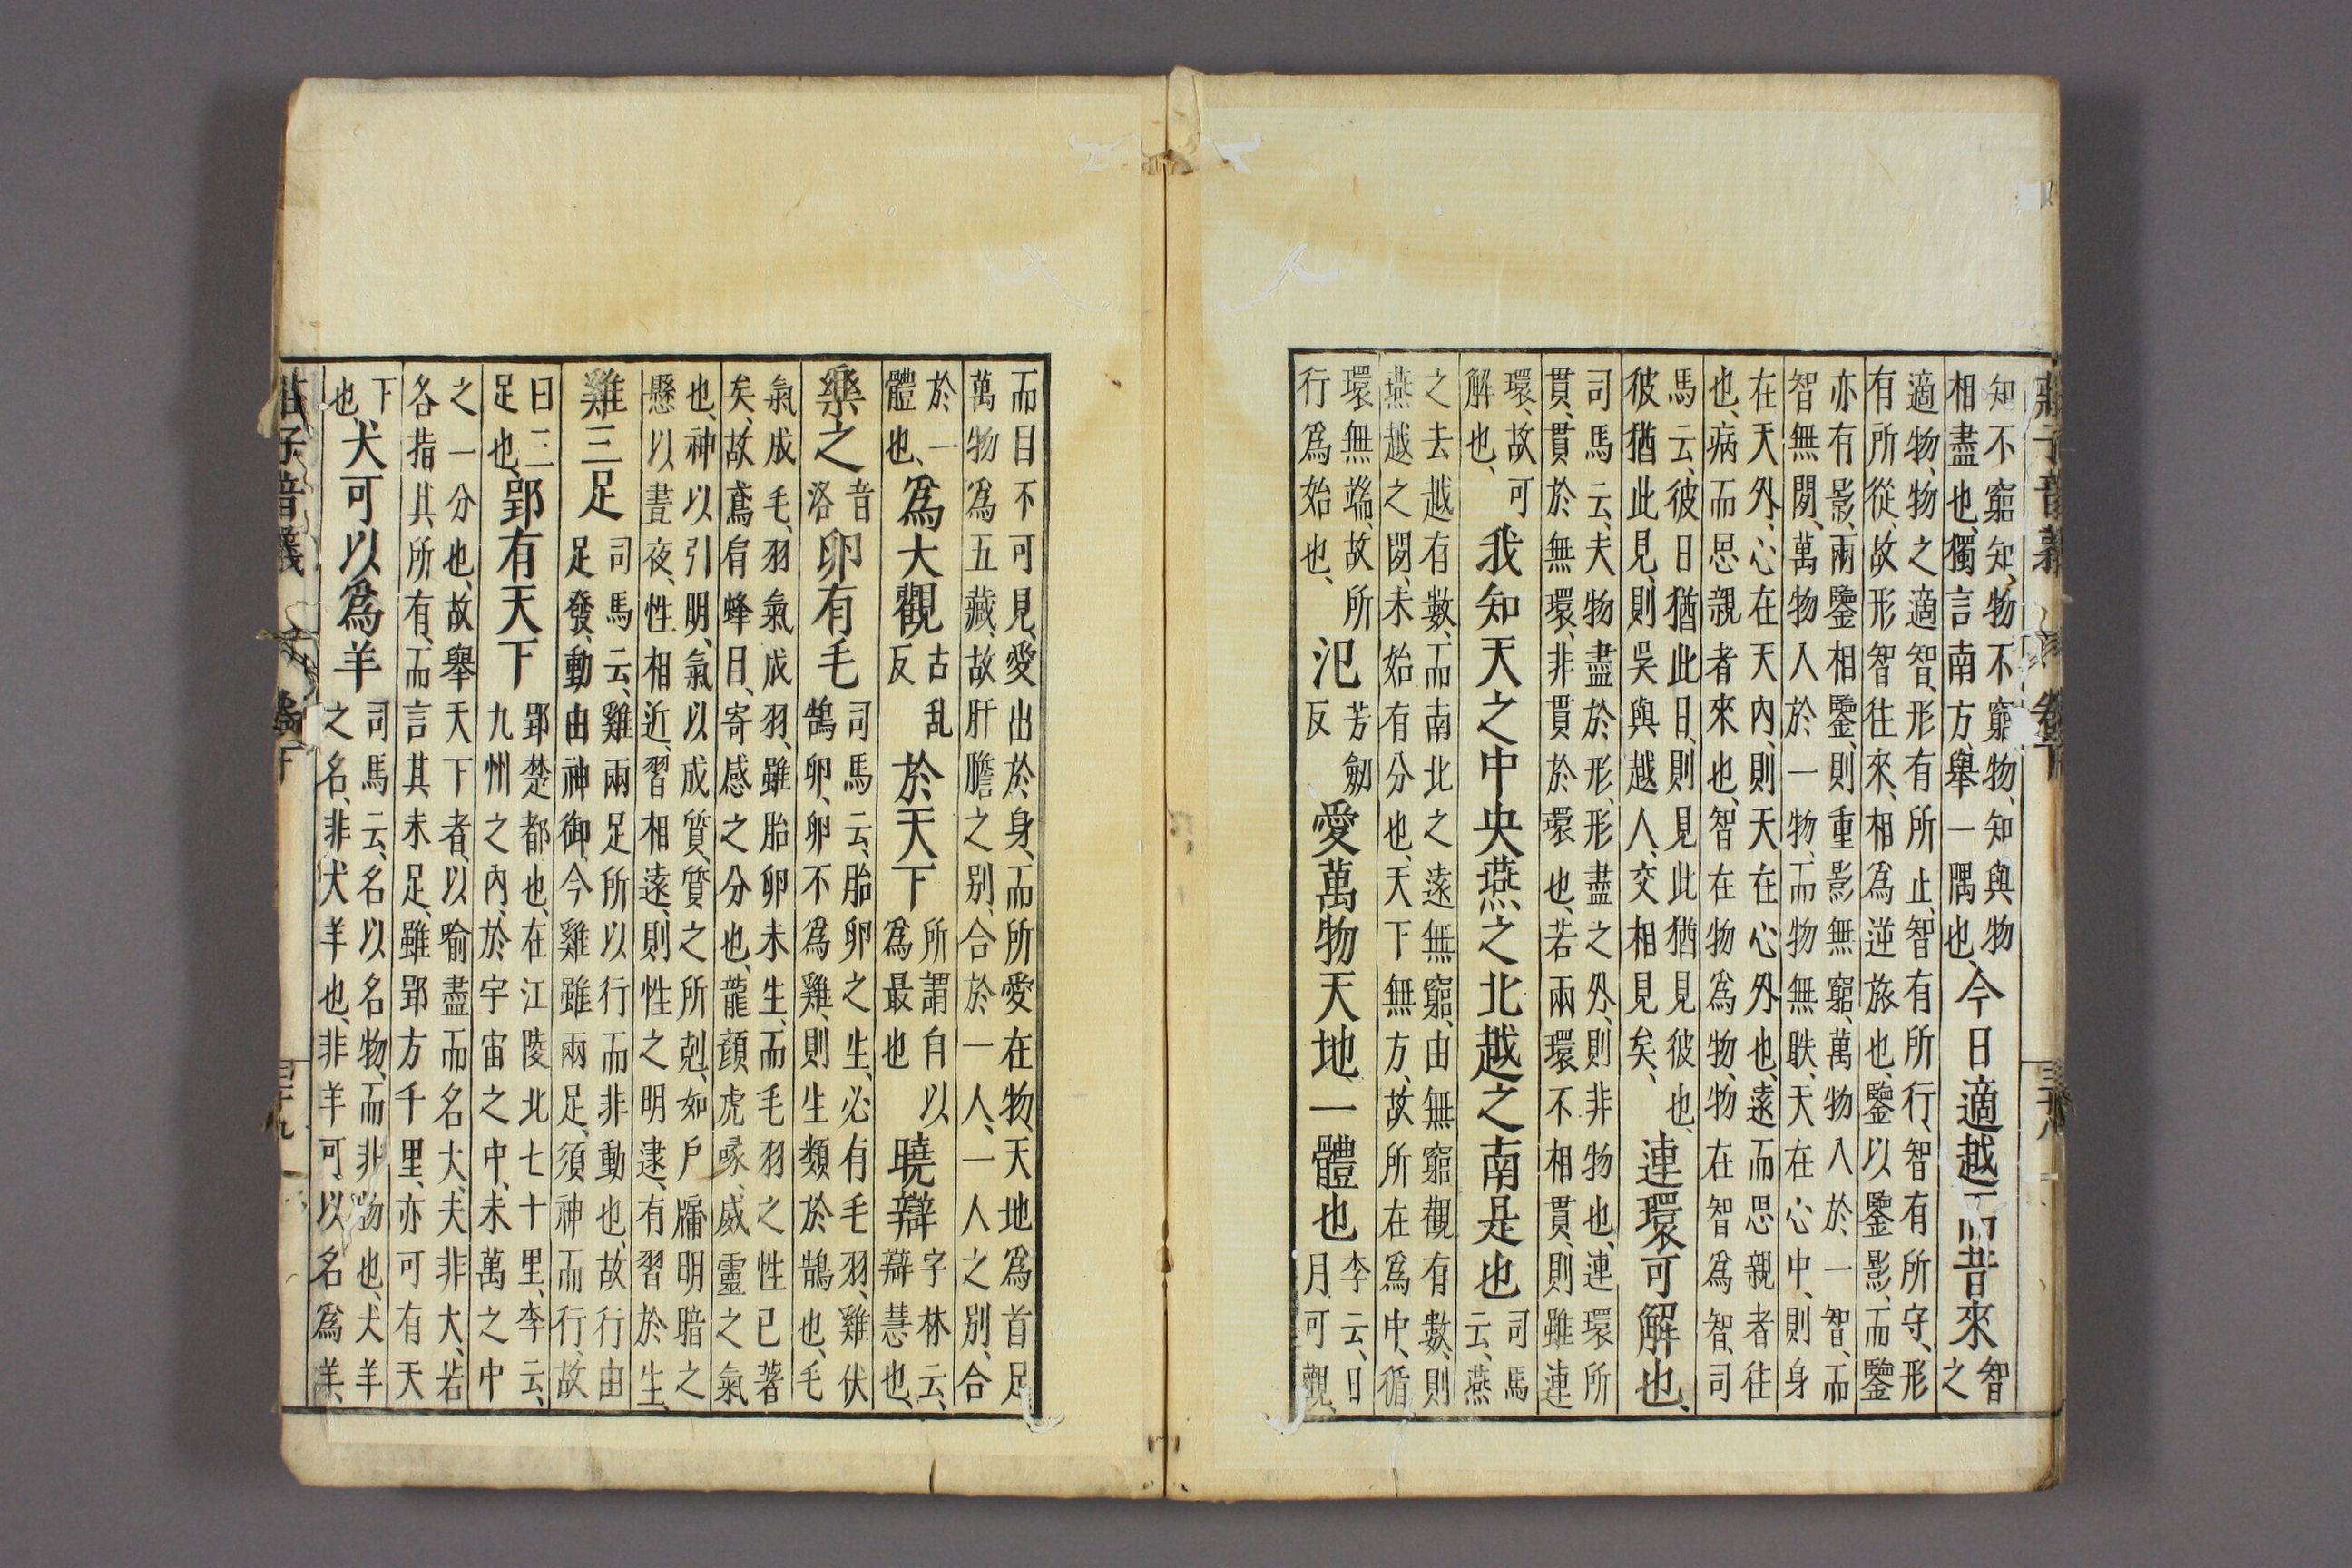 莊子音義 卷下 三十八
知不窮知、物不窮物、知與物
相盡也、獨言南方、舉一隅也、
今日適越而昔來
智
之
適物、物之適智、形有所止、智有所行、智有所守、形
有所從、故形智往來、相為逆旅也、鑒以鑒影、而鑒
亦有影、兩鑒相鑒、則重影無窮、萬物入於一智、而
智無閒、萬物入於一物、而物無眹、天在心中、則身
在天外、心在天內、則天在心外也、遠而思親者往
也、病而思親者來也、智在物爲物、物在智爲智、司
馬云、彼日猶此日、則見此猶見彼也、
彼猶此見、則吳與越人、交相見矣、
連環可解也、
司馬云、夫物盡於形、形盡之外、則非物也、連環所
貫、貫於無環、非貫於環也、若兩環不相貫、則雖連
環、故可
解也、
我知天之中央燕之北越之南是也
司馬
云、燕
之去越有數、而南北之遠無窮、由無窮觀有數、則
燕越之閒、未始有分也、天下無方、故所在爲中、循
環無端、故所
行爲始也、
氾
芳劒
反
愛萬物天地一體也
李云、日
月可觀、
而目不可見、愛出於身、而所愛在物、天地爲首足
萬物爲五藏、故肝膽之別、合於一人、一人之別、合
於一
體也、
爲大觀
古亂
反
於天下
所謂自以
爲最也
曉辯
字林云、
辯慧也、
樂之
音
洛
卵有毛
司馬云、胎卵之生、必有毛羽、雞伏
鵠卵、卵不爲雞、則生類於鵠也、毛
氣成毛、羽氣成羽、雖胎卵未生、而毛羽之性已著
矣、故鳶肩蜂目、寄感之分也、龍顏虎喙、威靈之氣
也、神以引明、氣以成質、質之所剋、如戶牖明暗之
懸以晝夜、性相近、習相遠、則性之明逮、有習於生、
雞三足
司馬云、雞兩足所以行而非動也、故行由
足發、動由神御、今雞雖兩足、須神而行、故
曰三
足也、
郢有天下
郢楚都也、在江陵北七十里、李云、
九州之內、於宇宙之中、未萬之中
之一分也、故舉天下者、以喻盡而名大、夫非大、若
各指其所有、而言其未足、雖郢方千里、亦可有天
下
也、
犬可以爲羊
司馬云、名以名物、而非物也、犬羊
之名、非犬羊也、非羊可以名爲羊、
莊子音義 卷下